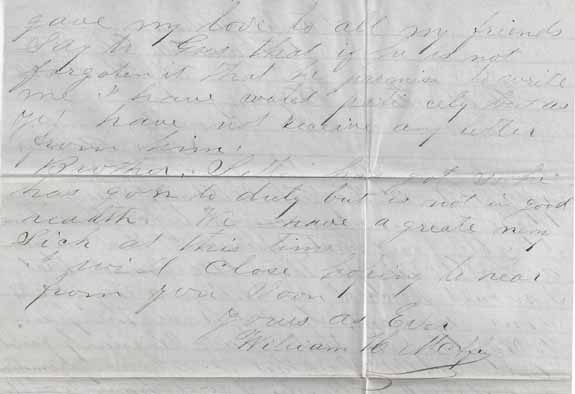 gave my love to all my friends
Say to that if he is not
forgoten it that he promise to write
me I have wated but as
yet have not receive any letter
from him.
Brother has got so he
has gon to duty but is not in good
health. We have a greate meny
Sick at this time
I will Close hoping to hear
from you Soon
Yours as Ever
William H.